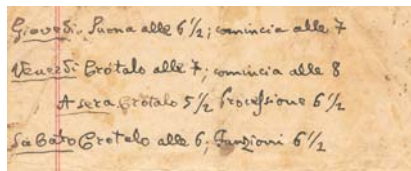 Giovedì. Suona alle 6 1/2; comincia alle 7
Venerdì Crotalo alle 7; comincia alle 8
A sera Crotalo 5 1/2 Processione 6 1/2
Sabato Crotalo alle 6; Funzioni 6 1/2